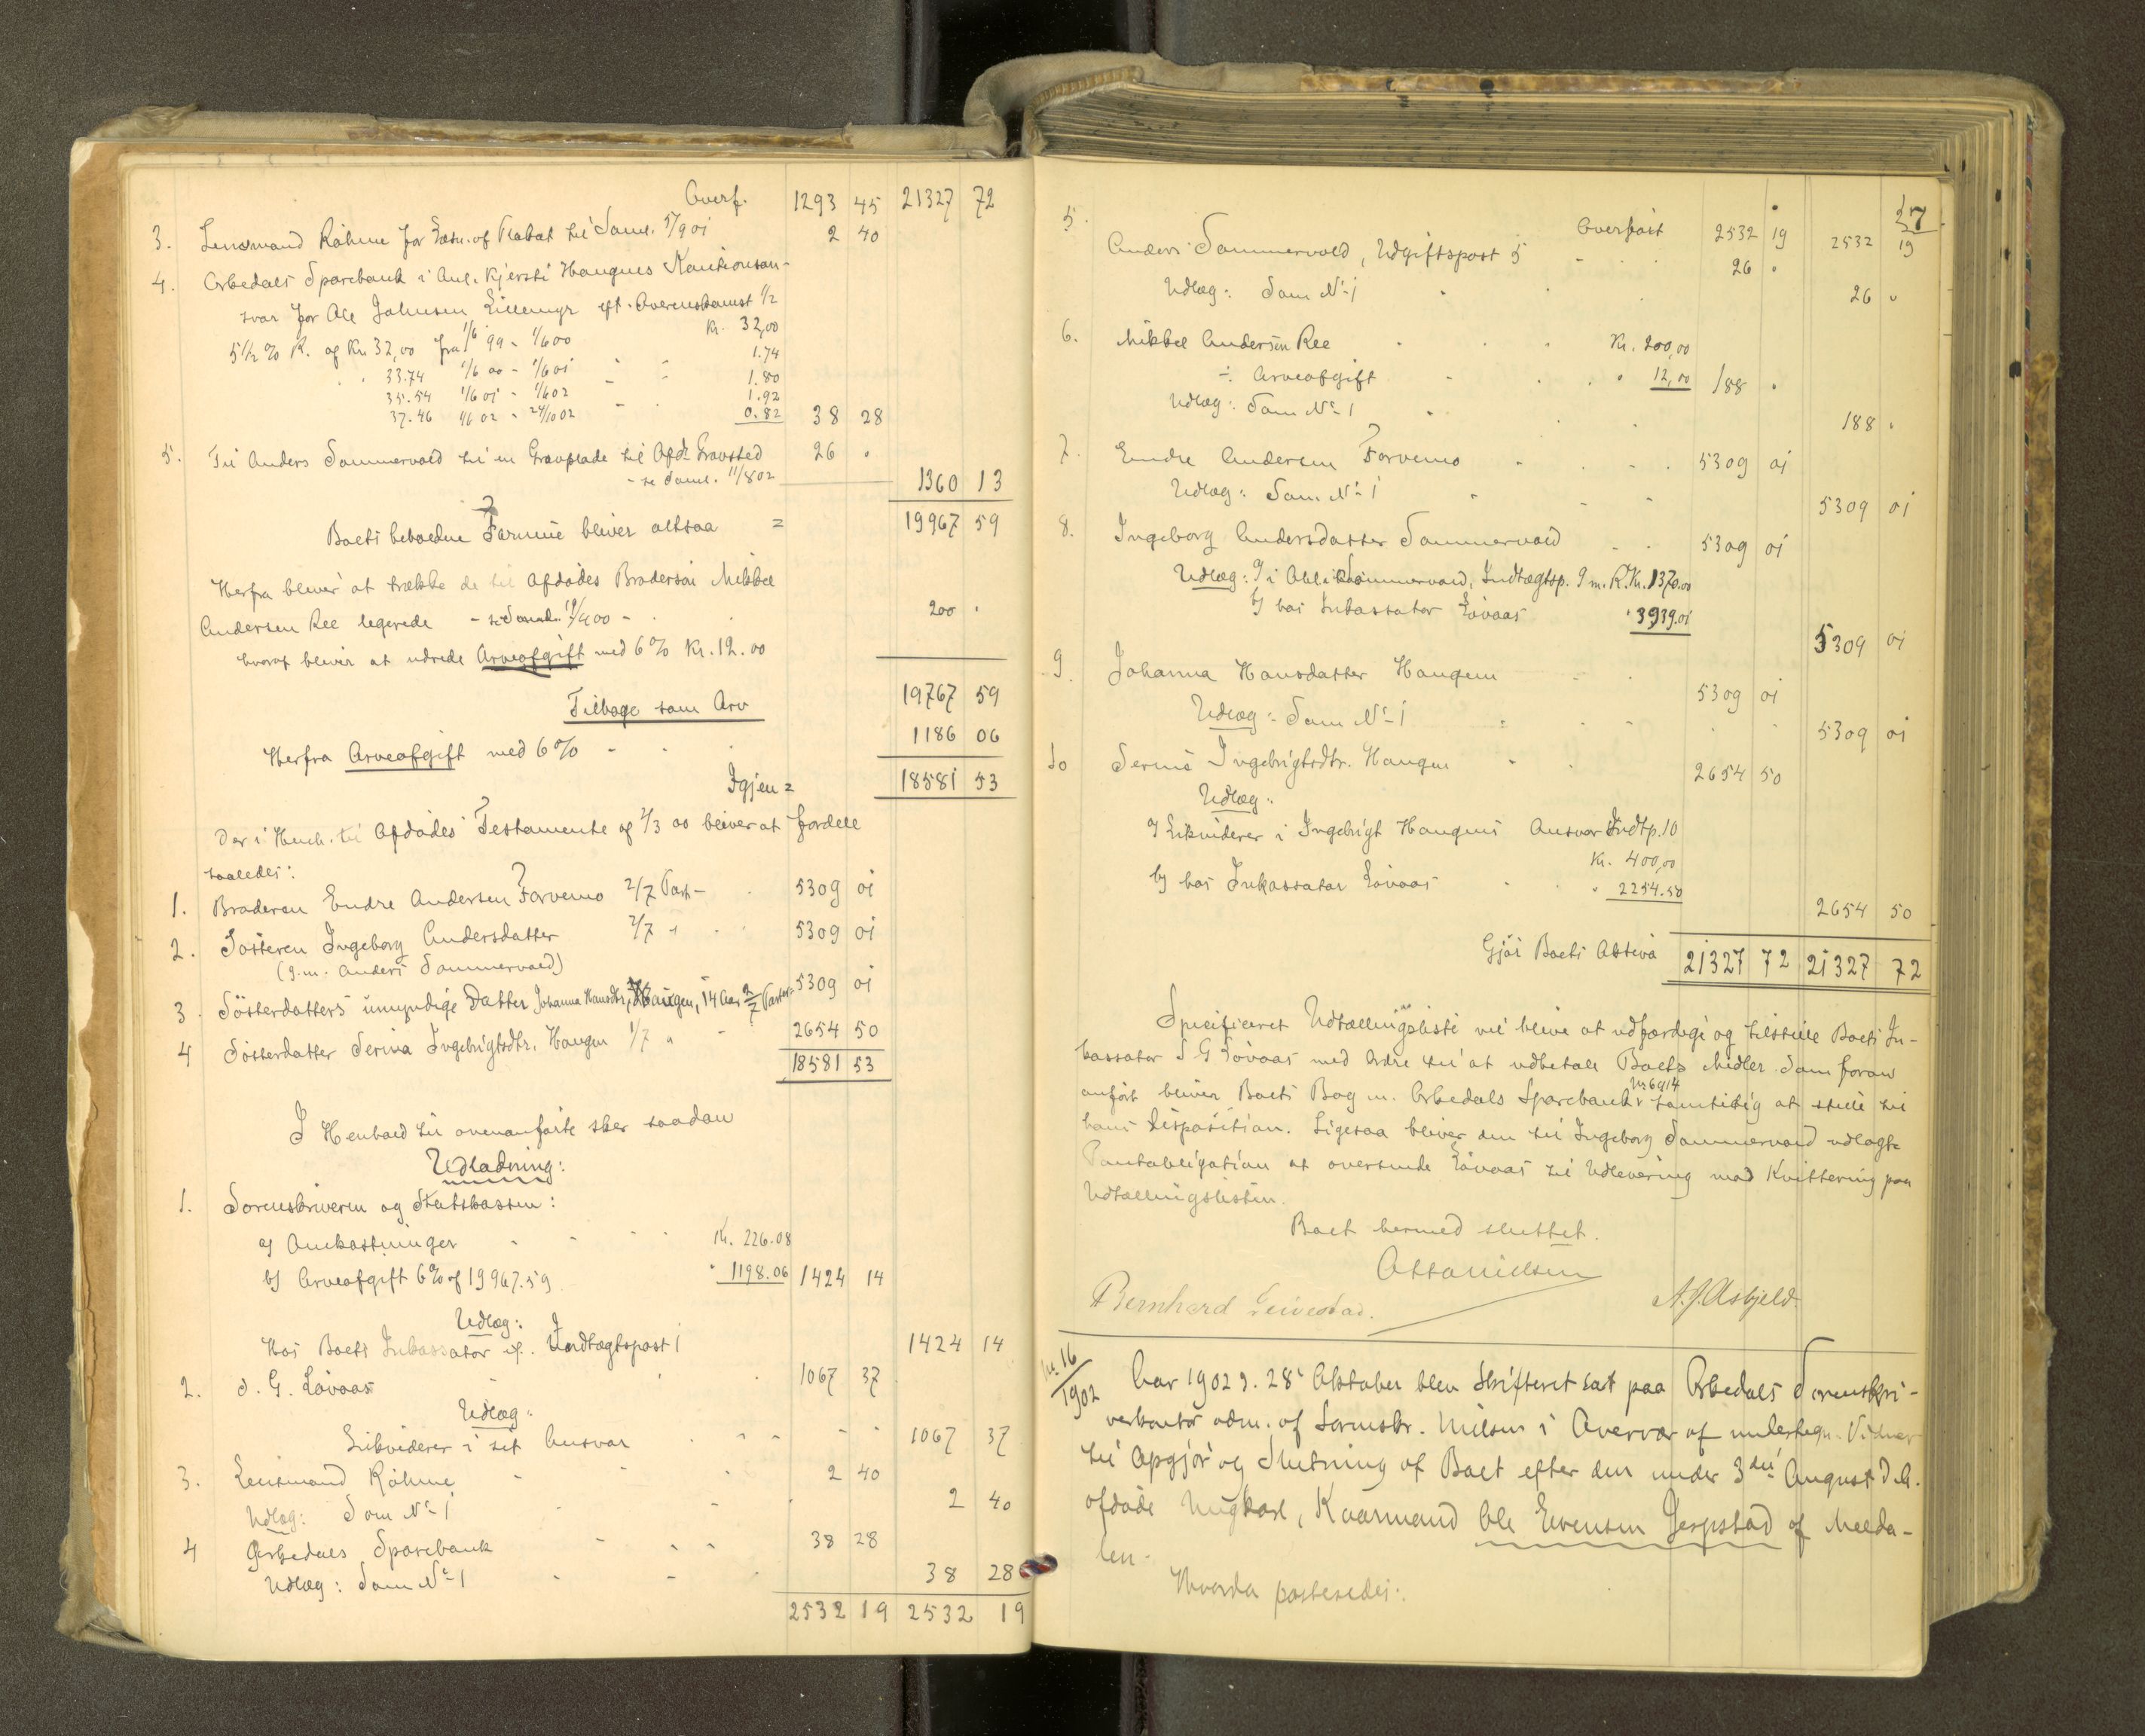 Overf. 1293 45 21327 72
3. Lensmand Röhme for Extr. af Plakat til Saml. 17/9 01 2 40
4. Orkedals Sparebank i Anl. Kjersti Haugens Kautionsan-
svar for Ole Johnsen Lillemyr eft. Overenskomst 1/2 Kr. 32,00
5 1/2 % R. af Kr. 32,00 fra 1/6 99 - 1/6 00 1.74
33.74 1/6 00 - 1/6 01 1.80
35.54 1/6 01 - 1/6 02 1.92
37.46 1/6 02 - 24/10 02 0.82 38 28
5. Til Anders Sommervold til en Gravplade til Afdes Gravsted 26 .
- se Saml. 11/8 02 1360 13
Boets beholdne Formue bliver altsaa = 19967 59
Herfra bliver at trække de til Afdødes Brodersön Mikkel
Andersen Ree legerede - se Saml. 19/4 00 - 200 .
hvoraf bliver at udrede Arveafgift med 6% Kr. 12.00
Tilbage som Arv 19767 59
Herfra Arveafgift med 6% - 1186 06
Igjen = 18581 53
Der i Henh. til Afdödes Testamente af 2/3 00 bliver at fordele
saaledes:
1. Broderen Endre Andersen Forvemo 2/7 Part - 5309 01
2. Søsteren Ingeborg Andersdatter 2/7 " 5309 01
(g. m. Anders Sommervold)
3. Sösterdatters umyndige Datter Johanna Hansdtr. Haugen, 14 Aar 2/7 Parter 5309 01
4 Sösterdatter Serina Ingebrigtsdtr. Haugen 1/7 " 2654 50
18581 53
I Henhold til ovenanförte sker saadan
Udlodning:
1. Sorenskriveren og Statskassen:
a) Omkostninger Kr. 226.08
b) Arveafgift 6% af 19967.59 " 1198.06 1424 14
Udlæg:
Hos Boets Inkassator if. Indtægtspost 1 1424 14
2. S. G. Lövaas 1067 37
Udlæg:
Likviderer i sit Ansvar 1067 37
3. Lensmand Röhme 2 40
Udlæg: Som No 1 2 40
4 Orkedals Sparebank 38 28
Udlæg: Som No 1 38 28
2532 19 2532 19
27
Overfört 2532 19 2532 19
5. Anders Sommervold, Udgiftspost 5 26 .
Udlæg: Som No 1 26 "
6. Mikkel Andersen Ree Kr. 200,00
÷ Arveafgift " 12,00 188 .
Udlæg: Som No 1 188 .
7. Endre Andersen Forvemo 5309 01
Udlæg: Som No 1 5309 01
8. Ingeborg Andersdatter Sommervold 5309 01
Udlæg: a) i Obl. Sommervold, Indtægtsp. 9 m. R. Kr. 1370.00
b) hos Inkassator Lövaas " 3939.01
5309 01
9. Johanna Hansdatter Haugen 5309 01
Udlæg: Som No 1 5309 01
10 Serine Ingebrigtsdtr. Haugen 2654 50
Udlæg:
a) Likviderer i Ingebrigt Haugens Ansvar Indtp. 10
Kr. 400,00
b) hos Inkassator Lövaas " 2254.50
2654 50
Gjör Boets Aktiva 21327 72 21327 72
Specificeret Udtællingsliste vil blive at udfærdige og tilstille Boets In-
kassator S G Lövaas med Ordre til at udbetale Boets Midler. Som foran
anfört bliver Boets Bog m. Orkedals Sparebank No 6914 samtidig at stille til
hans Disposition. Ligesaa bliver den til Ingeborg Sommervold udlagte
Pantobligation at oversende Lövaas til Udlevering mod Kvittering paa
Udtællingslisten.
Boet hermed sluttet.
Otto Nielsen
Bernhard Leivestad. A. J. Asbjeld.
Nr. 16
1902
Aar 1902 d. 28' Oktober blev Skifteret sat paa Orkedals Sorenskri-
verkontor adm. af Sorenskr. Nielsen i Overvær af undertegn. Vidner
til Opgjör og Slutning af Boet efter den under 3die August d. A.
afdöde Ungkarl, Kaarmand Ole Evensen Jerpstad af Melda-
len.
Hvorda passerede: